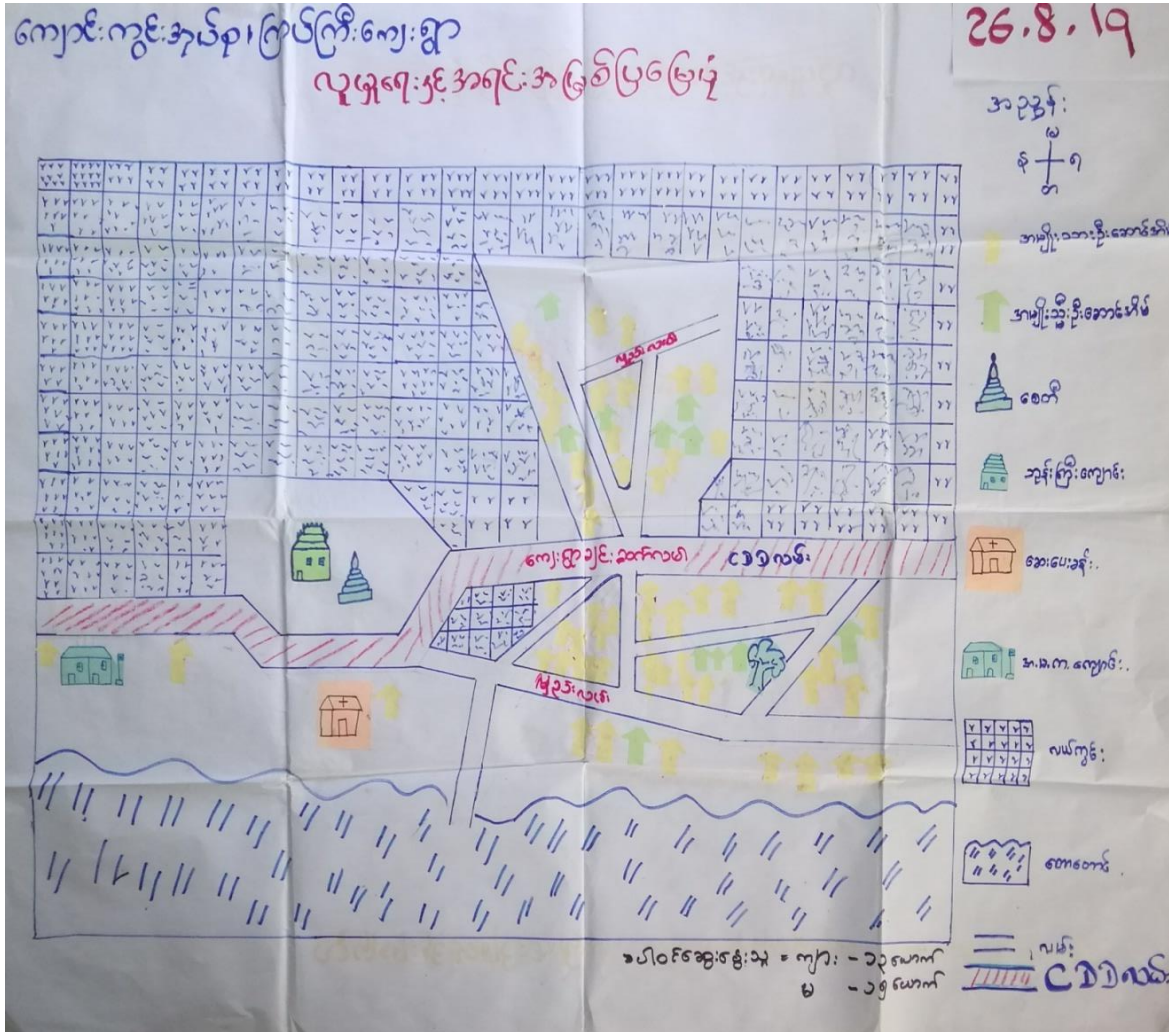 ကျောင်းကွင်းအုပ်စု၊ ကြပ်ကြီးကျေးရွာ
26.8.19
လူမှုရေးနှင့်အရင်းအမြစ်ပြမြေပုံ
အညွှန်း
အမျိုးသားဦးဆောင်အိမ်
အမျိုးသ္မီးဦးဆောင်အိမ်
စေတီ
ဘုန်းကြီးကျောင်း
ဆေးပေးခန်း
အ.မ.က.ကျောင်း
လယ်ကွင်း
တောတောင်
လမ်း
CDDလမ်း
မြို့ပတ်လမ်း
ကျေးရွာချင်းဆက်လမ်း
CDDလမ်း
ပါဝင်ဆွေးနွေးသူ = ကျား - ၁၃ယောက်
မ - ၁၅ယောက်